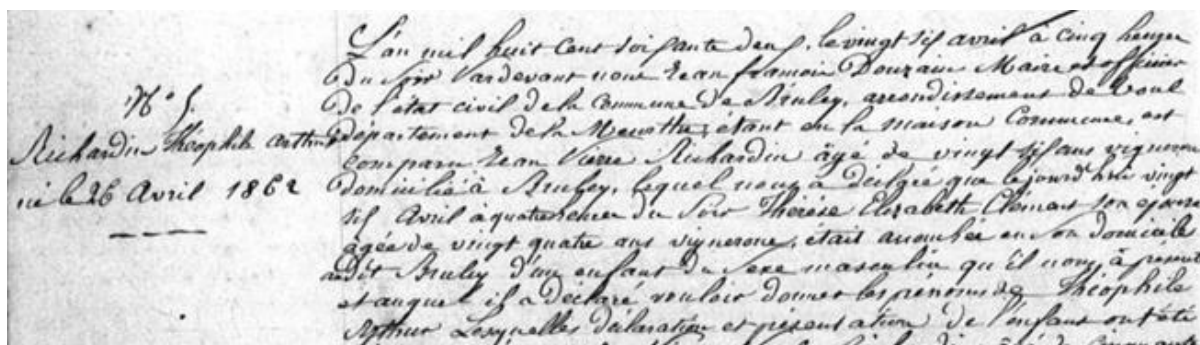 N° 5
Richardin Théophile Arthur
né le 26 Avril 1862
L'an mil huit cent soixante deux, le vingt six avril à cinq heures
du soir Pardevant nous Jean François Douzain Maire et officier
de l'état civil de la Commune de Bruley, arrondissement de Toul
département de la Meurthe, étant en la maison Commune, est
comparu Jean Pierre Richardin âgé de vingt six ans vigneron
domicilié à Bruley, lequel nous a déclaré que le jourd'hui vingt
six Avril à quatre heures du soir Thérèse Elizabeth Clément son épouse
âgée de vingt quatre ans vigneronne, était accouchée en son domicile
audit Bruley d'un enfant du sexe masculin qu'il nous a présenté
et auquel il a déclaré vouloir donner les prénoms de Théophile
Arthur Lesquelles déclaration et présentation de l'enfant ont été